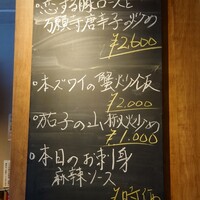 ・恋する豚ロースと
万願寺唐辛子炒め
¥2,600
・本ズワイの蟹炒飯
¥2,000
・茄子の山椒炒め
¥1,000
・本日のお刺身
麻辣ソース
¥時価